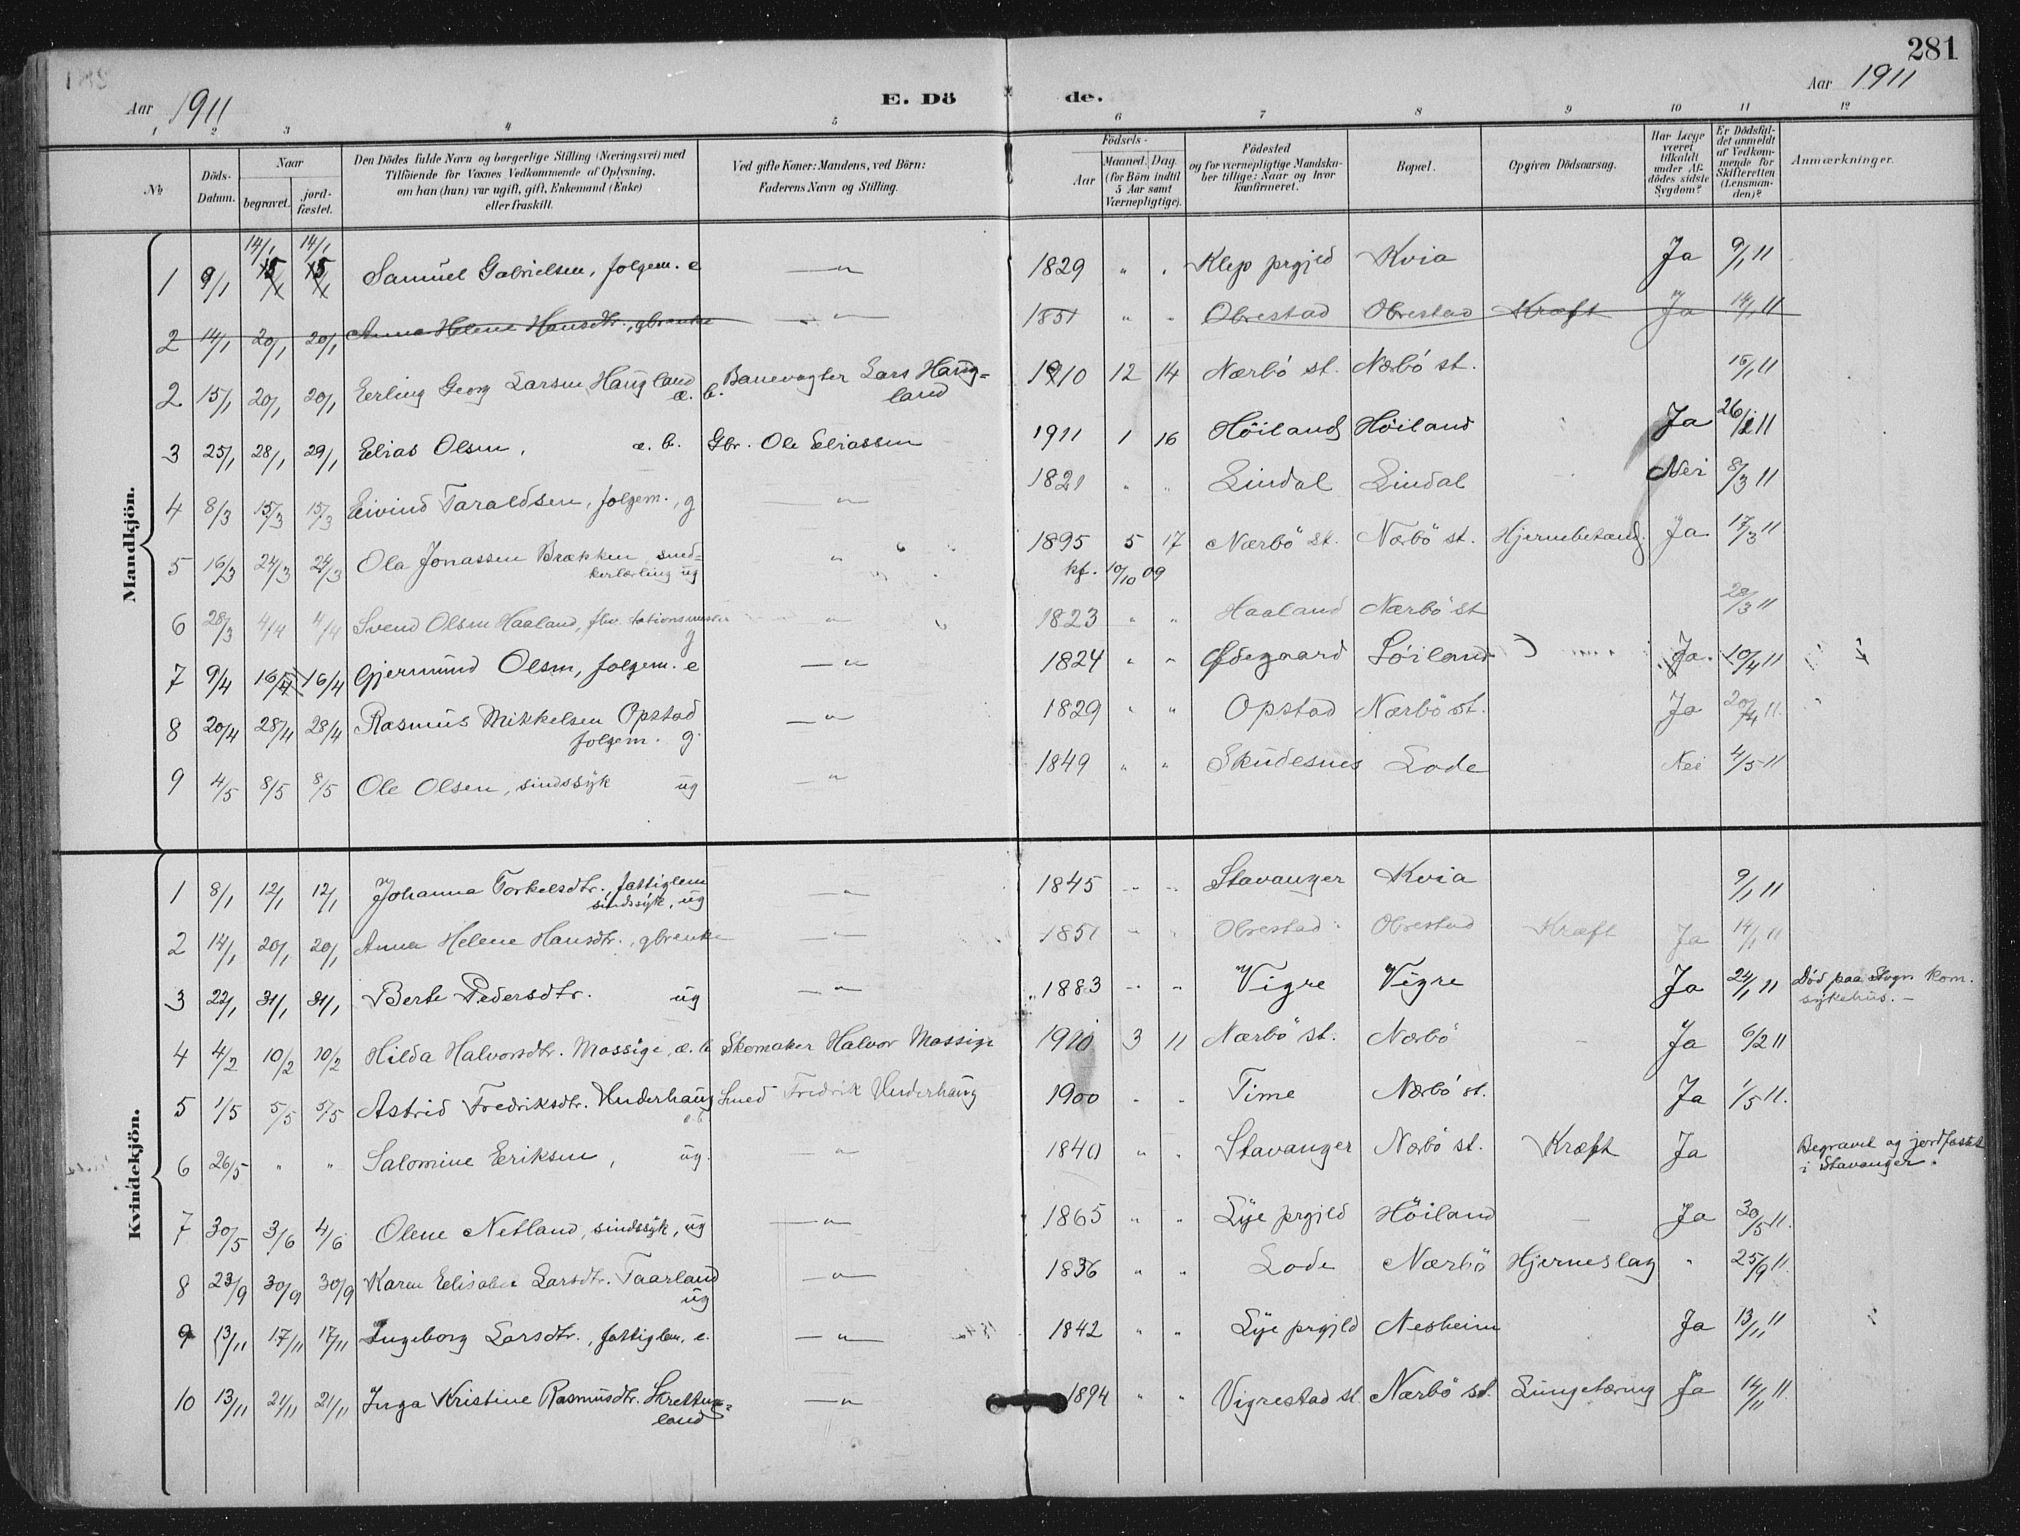 281
Aar 1911
E. Dö
de.
Aar 1911
1 2 3 4 5 6 7 8 9 10 11 12
No
Döds-
Datum.
Naar
begravet.
jord-
fæstet.
Den Dödes fulde Navn og borgerlige Stilling (Næringsvei) med
Tilföiende for Voxnes Vedkommende af Oplysning,
om han (hun) var ugift, gift, Enkemand (Enke)
eller fraskilt.
Ved gifte Koner: Mandens, ved Börn:
Faderens Navn og Stilling.
Födsels-
Aar
Maaned. Dag.
(for Börn indtil
5 Aar samt
Værnepligtige).
Födested
og for værnepligtige Mandska-
ber tillige: Naar og hvor
konfirmeret.
Bopæl.
Opgiven Dödsaarsag.
Har Læge
været
tilkaldt
under Af-
dödes sidste
Sygdom?
Er Dödsfal-
det anmeldt
af Vedkom-
mende for
Skifteretten
(Lensman-
den)?
Anmærkninger.
Mandkjön.
14/1 14/1
1 9/1 15/1 15/1 Samuel Gabrielsen, folgem. e — " — 1829 " " Klep prgjld Kvia Ja 9/1 11
2 14/1 20/1 20/1 Anna Helene Hansdtr., gbrenke — " — 1851 " " Obrestad Obrestad Kræft Ja 14/1 11
2 15/1 20/1 20/1 Erling Georg Larsen Haugland æ. b. Banevogter Lars Haug=
land 1910 12 14 Nærbö st. Nærbö st. 15/1 11
3 25/1 28/1 29/1 Elias Olsen, e. b. Gbr. Ole Eliassen 1911 1 16 Höiland Höiland Ja 26/1 11
4 8/3 15/3 15/3 Eivind Taraldsen, folgem., g — " — 1821 " " Lindal Lindal Nei 8/3 11
5 16/3 24/3 24/3 Ola Jonassen Brækken, sned-
kerlærling ug " 1895 5 17 Nærbö st. Nærbö st. Hjernebetænd. Ja 17/3 11
kf. 10/10 09
6 28/3 4/4 4/4 Svend Olsen Haaland, fhv. stationsmester
g — " — 1823 " " Haaland Nærbö st 28/3 11
7 9/4 16/4 16/4 Gjermund Olsen, folgem. e — " — 1824 " " Ødegaard Söiland Ja. 10/4 11
8 20/4 28/4 28/4 Rasmus Mikkelsen Opstad
folgem. g. — " — 1829 " " Opstad Nærbö st. Ja 20/4 11.
9 4/5 8/5 8/5 Ole Olsen, sindssyk ug — " — 1849 " " Skudesnes Lode Nei 4/5 11
Kvindekjön.
1 8/1 12/1 12/1 Johanna Torkelsdtr., fattiglem
sindssyk, ug — " — 1845 " " Stavanger Kvia 9/1 11
2 14/1 20/1 20/1 Anna Helene Hansdtr., gbrenke — " — 1851 " " Obrestad Obrestad Kræft Ja 14/1 11
3 22/1 31/1 31/1 Berte Pedersdtr. ug — " — 1883 " " Vigre Vigre Ja 24/1 11 Död paa Kom.
sykehus. —
4 4/2 10/2 10/2 Hilda Halvorsdtr. Mossige, æ. b Skomaker Halvor Mossige 1910 3 11 Nærbö st. Nærbö Ja 6/2 11
5 1/5 5/5 5/5 Astrid Fredriksdtr. Underhaug
e. b. Smed Fredrik Underhaug 1900 " " Time Nærbö st. Ja 1/5 11.
6 26/5 " " Salomine Eriksen, ug. — " 1840 " " Stavanger Nærbö st. Kræft Ja Begravet og jordfæstet
i Stavanger.
7 30/5 3/6 4/6 Olene Netland, sindssyk, ug — " — 1865 " " Lye prgjld Höiland Ja 30/5 11.
8 23/9 30/9 30/9 Karen Elisabet Larsdtr. Taarland
ug — " — 1836 " " Lode Nærbö Hjerneslag " 25/9 11.
9 13/11 17/11 17/11 Ingeborg Larsdtr., fattiglem, e. — " — 1842 " " Lye prgjld Nesheim Ja 13/11 11
10 13/11 21/11 21/11 Inga Kristine Rasmusdtr. Skrettinge-
land — " — 1894 " " Vigrestad st. Nærbö st. Lungetæring Ja 14/11 11.